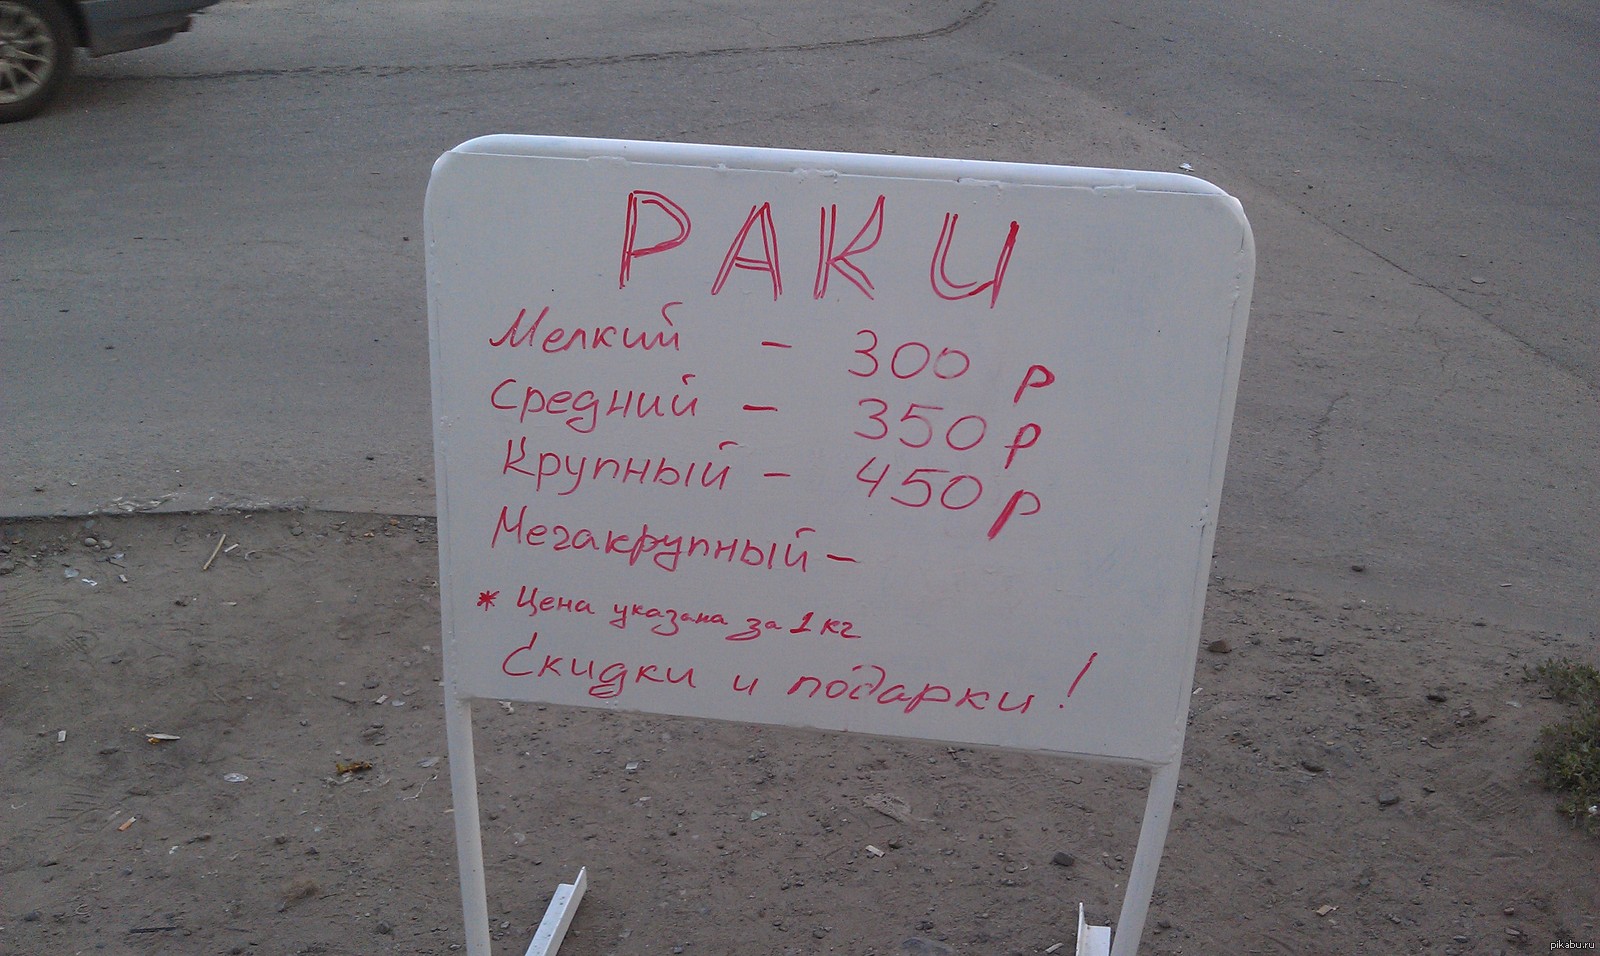 РАКИ
Мелкий - 300 р
Средний - 350 р
Крупный - 450 р
Мегакрупный -
* Цена указана за 1 кг
Скидки и подарки!
pikabu.ru